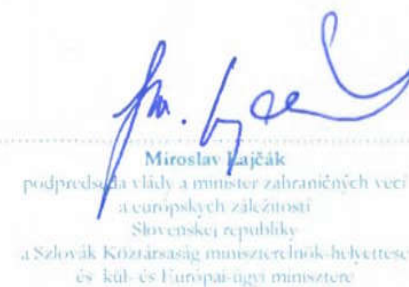 Miroslav Lajčák
podpredseda vlády a minister zahraničných vecí
a európskych záležitostí
Slovenskej republiky
a Szlovák Köztársaság miniszterelnök-helyettese
és kül- és Európai-ügyi minisztere